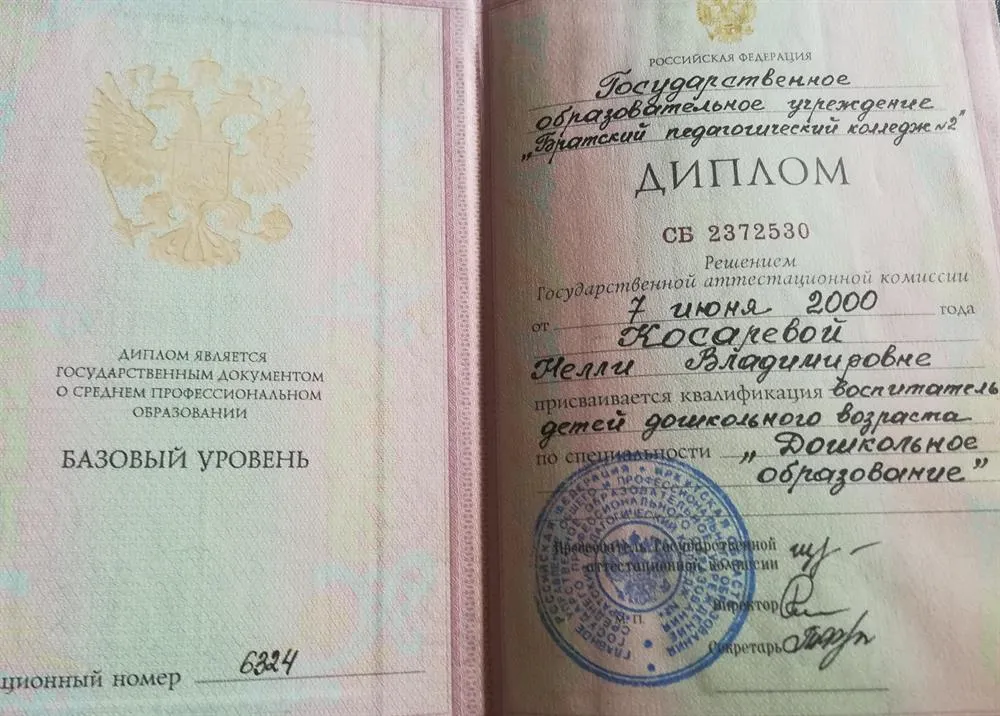 ДИПЛОМ ЯВЛЯЕТСЯ
ГОСУДАРСТВЕННЫМ ДОКУМЕНТОМ
О СРЕДНЕМ ПРОФЕССИОНАЛЬНОМ
ОБРАЗОВАНИИ
БАЗОВЫЙ УРОВЕНЬ
ционный номер 6324
РОССИЙСКАЯ ФЕДЕРАЦИЯ
Государственное
образовательное учреждение
„Братский педагогический колледж №2"
ДИПЛОМ
СБ 2372530
Решением
Государственной аттестационной комиссии
от 7 июня 2000 года
Косаревой
Нелли Владимировне
присваивается квалификация воспитатель
детей дошкольного возраста
по специальности „Дошкольное
образование"
Председатель Государственной
аттестационной комиссии
М. П.
Директор
Секретарь